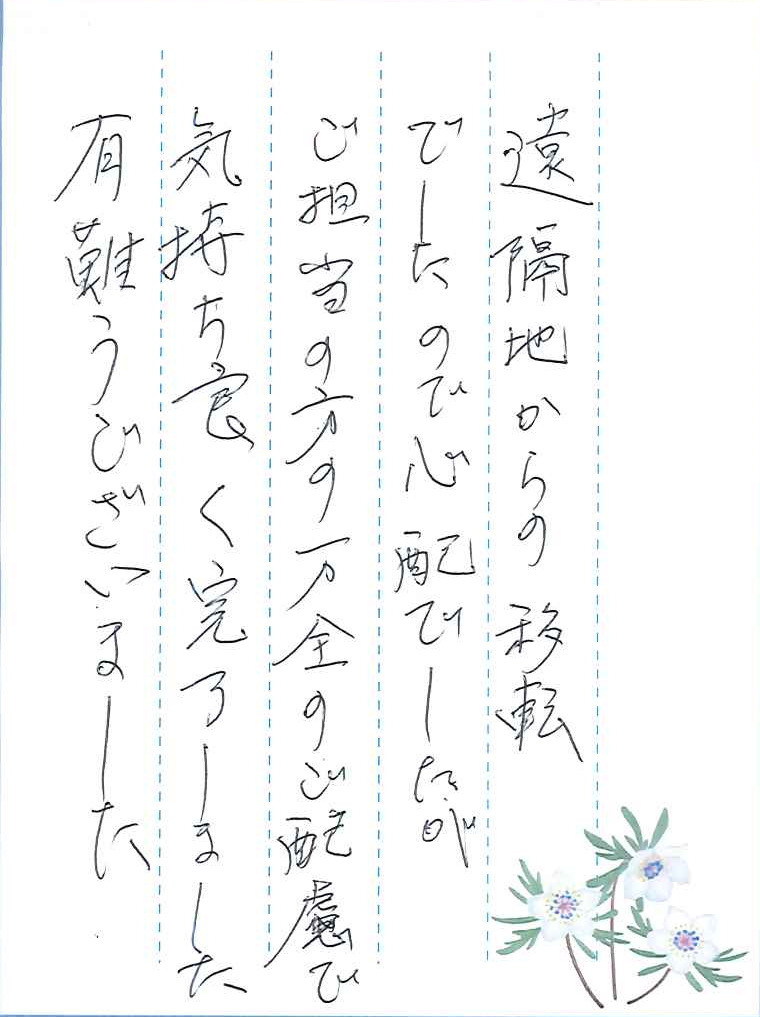 遠隔地からの移転
でしたので心配でしたが
ご担当の方の万全のご配慮で
気持ち良く完了しました
有難うございました